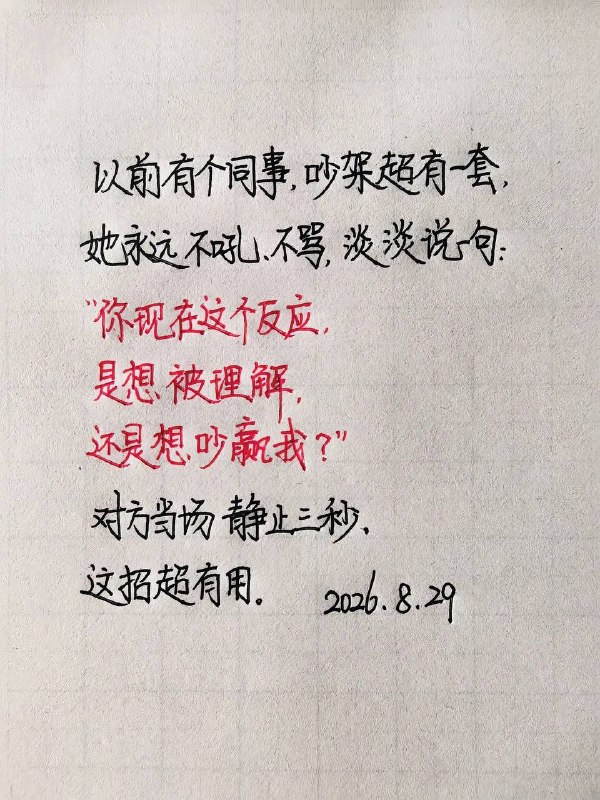 以前有个同事,吵架超有一套,
她永远不吼、不骂,淡淡说一句:
“你现在这个反应,
是想被理解,
还是想吵赢我?”
对方当场静止三秒、
这招超有用。 2026.8.29